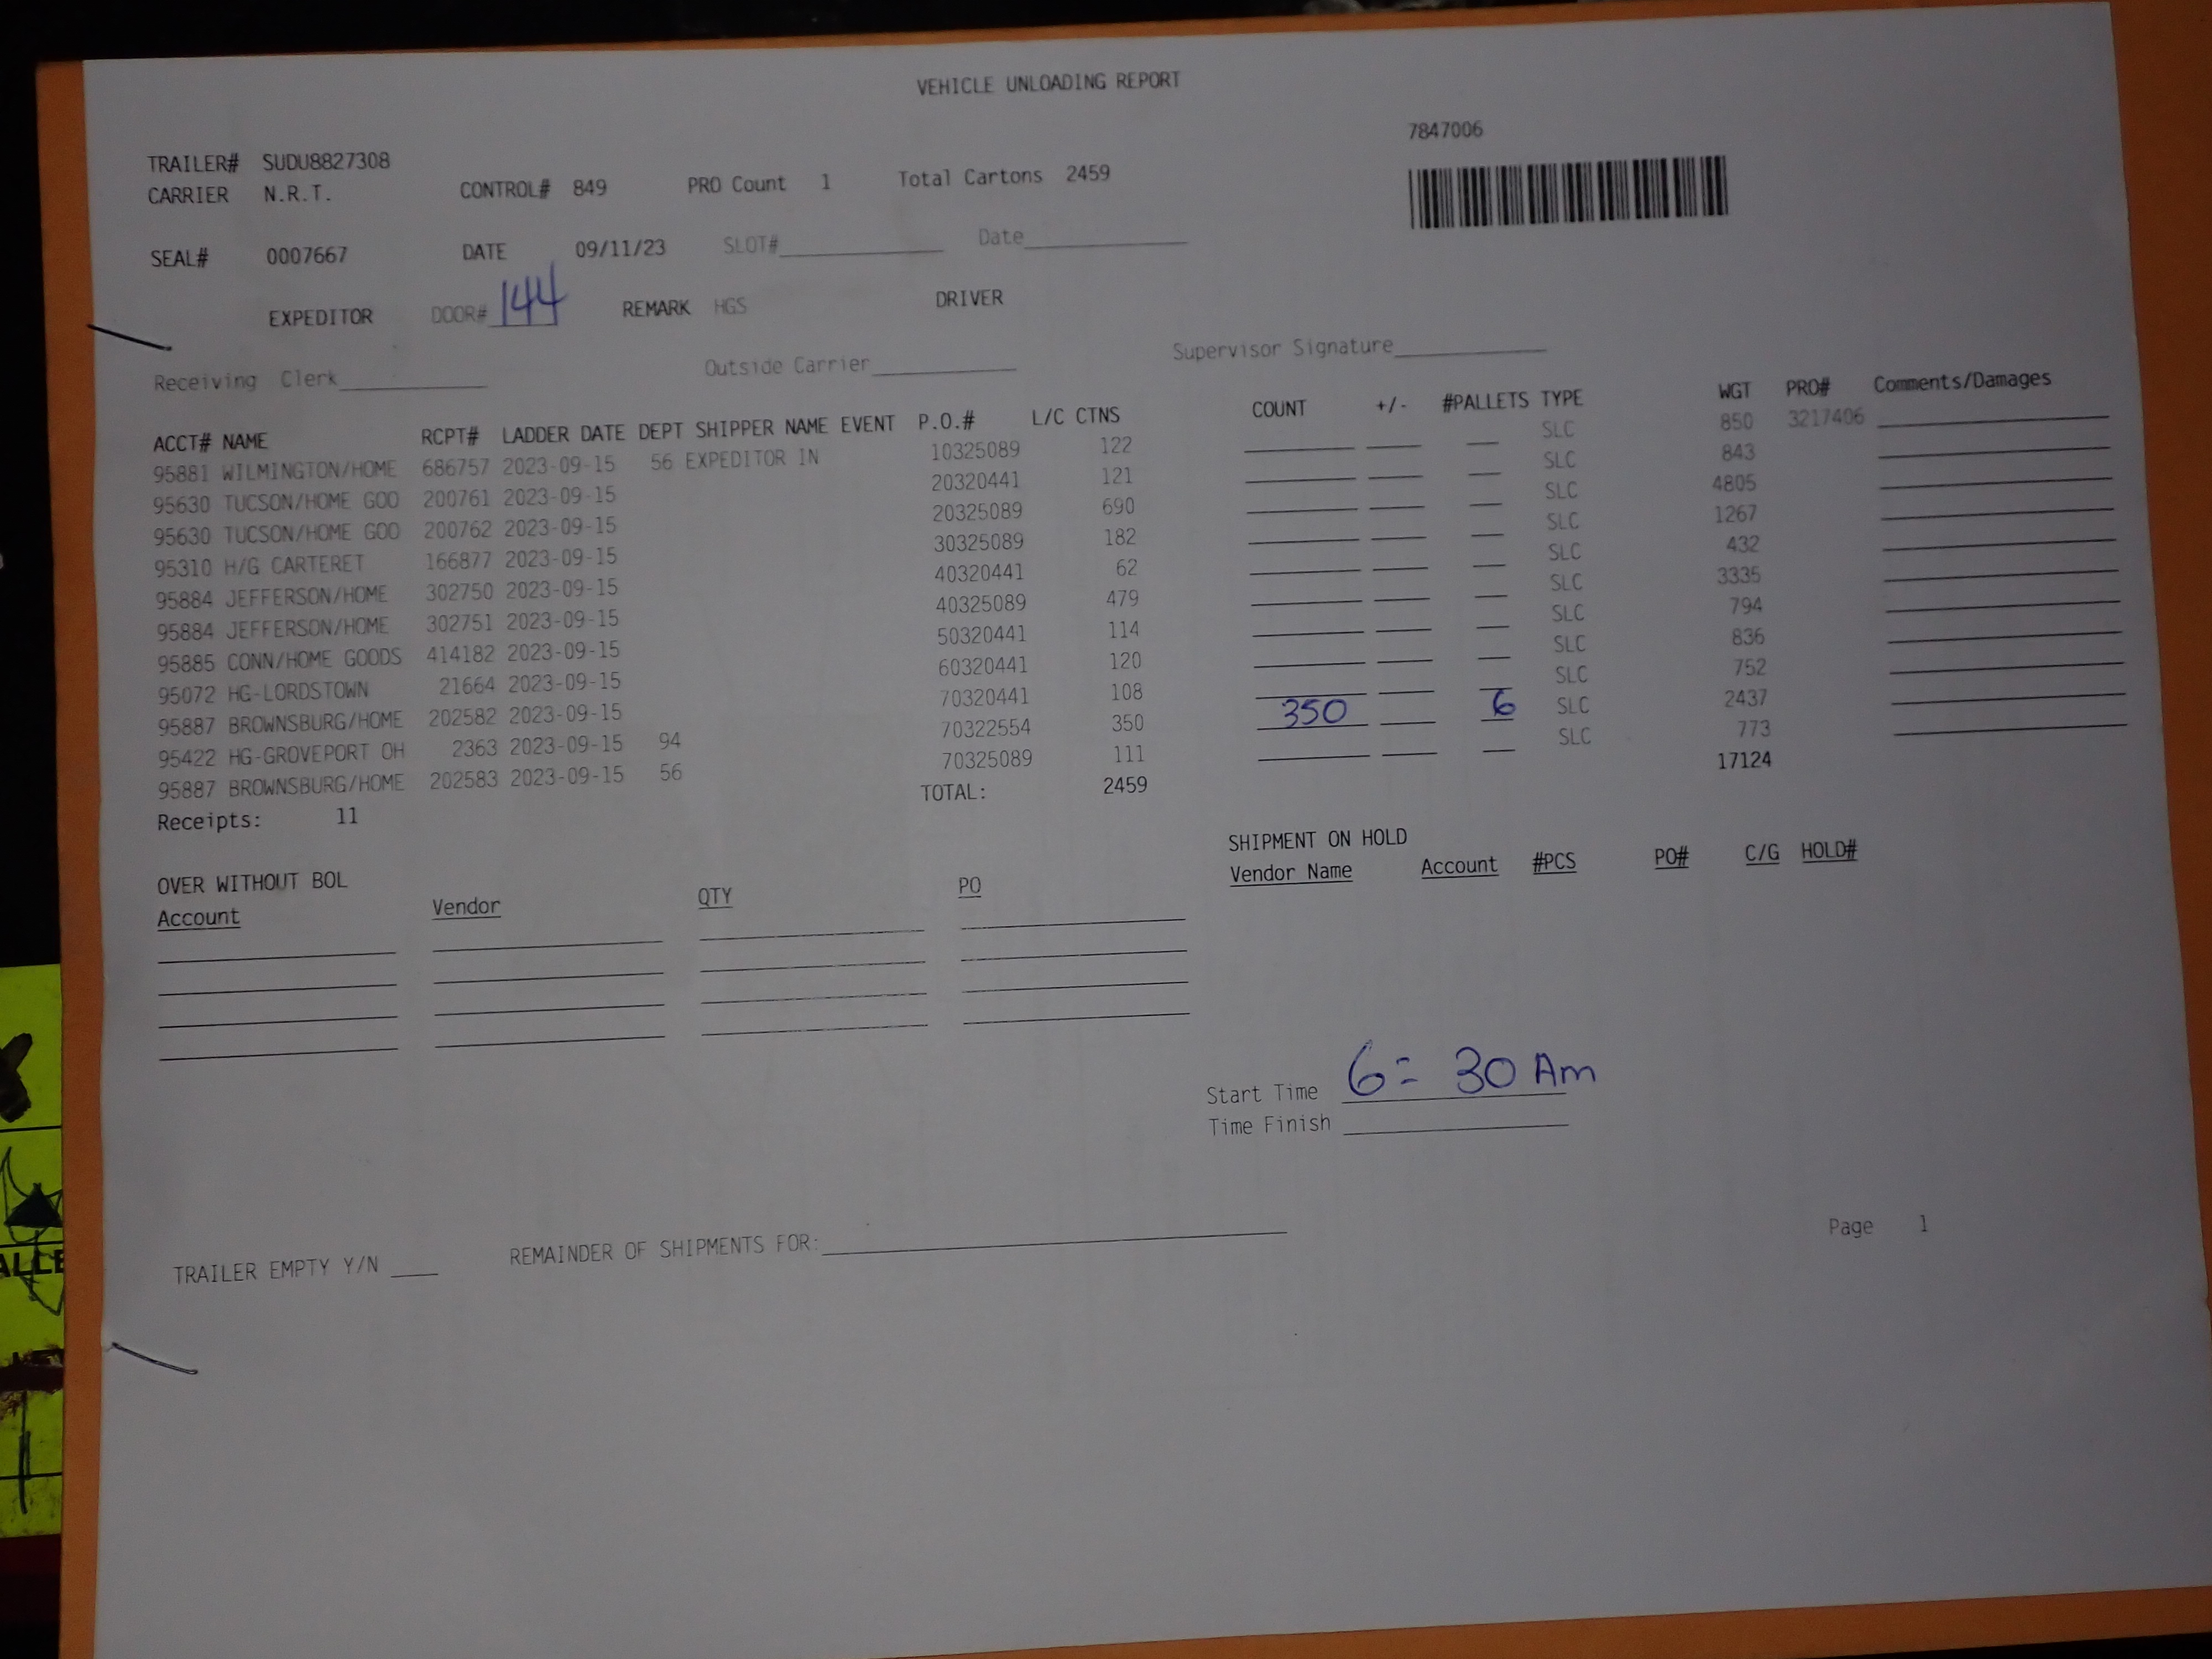 VEHICLE UNLOADING REPORT
7847006
TRAILER# SUDU8827308
CARRIER N.R.T. CONTROL# 849 PRO Count 1 Total Cartons 2459
SEAL# 0007667 DATE 09/11/23 SLOT# Date
EXPEDITOR DOOR# 144 REMARK HGS DRIVER
Receiving Clerk Outside Carrier Supervisor Signature
ACCT# NAME RCPT# LADDER DATE DEPT SHIPPER NAME EVENT P.O.# L/C CTNS COUNT +/- #PALLETS TYPE WGT PRO# Comments/Damages
95881 WILMINGTON/HOME 686757 2023-09-15 56 EXPEDITOR IN 10325089 122 SLC 850 3217406
95630 TUCSON/HOME GOO 200761 2023-09-15 20320441 121 SLC 843
95630 TUCSON/HOME GOO 200762 2023-09-15 20325089 690 SLC 4805
95310 H/G CARTERET 166877 2023-09-15 30325089 182 SLC 1267
95884 JEFFERSON/HOME 302750 2023-09-15 40320441 62 SLC 432
95884 JEFFERSON/HOME 302751 2023-09-15 40325089 479 SLC 3335
95885 CONN/HOME GOODS 414182 2023-09-15 50320441 114 SLC 794
95072 HG-LORDSTOWN 21664 2023-09-15 60320441 120 SLC 836
95887 BROWNSBURG/HOME 202582 2023-09-15 70320441 108 SLC 752
95422 HG-GROVEPORT OH 2363 2023-09-15 94 70322554 350 350 6 SLC 2437
95887 BROWNSBURG/HOME 202583 2023-09-15 56 70325089 111 SLC 773
Receipts: 11 TOTAL: 2459 17124
OVER WITHOUT BOL SHIPMENT ON HOLD
Account Vendor QTY PO Vendor Name Account #PCS PO# C/G HOLD#
Start Time 6= 30 Am
Time Finish
TRAILER EMPTY Y/N REMAINDER OF SHIPMENTS FOR: Page 1